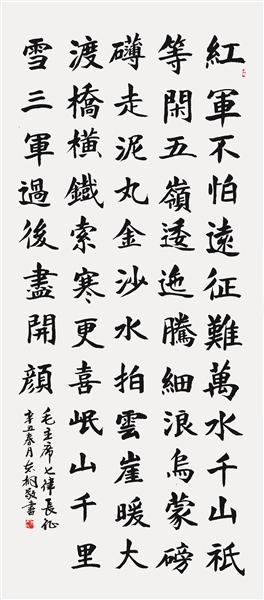 紅軍不怕遠征難萬水千山祇
等閑五嶺逶迤騰細浪烏蒙磅
礴走泥丸金沙水拍雲崖暖大
渡橋橫鐵索寒更喜岷山千里
雪三軍過後盡開顏
毛主席七律長征
辛丑春月桐敬書